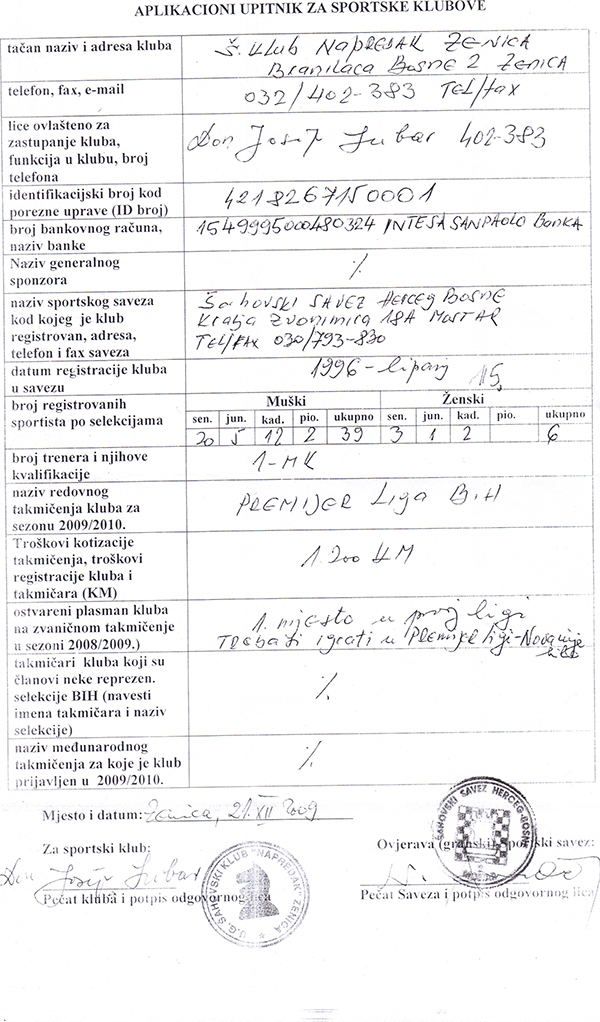 APLIKACIONI UPITNIK ZA SPORTSKE KLUBOVE
tačan naziv i adresa kluba
Š. Klub NAPREDAK ZENICA
Branilaca Bosne 2 ZENICA
telefon, fax, e-mail
032/402-383 TEL/fax
lice ovlašteno za
zastupanje kluba,
funkcija u klubu, broj
telefona
Don Josip Jubar 402-383
identifikacijski broj kod
porezne uprave (ID broj)
4218267150001
broj bankovnog računa,
naziv banke
1549995000480324 INTESA SANPAOLO Banka
Naziv generalnog
sponzora
%
naziv sportskog saveza
kod kojeg je klub
registrovan, adresa,
telefon i fax saveza
Šahovski SAVEZ Herceg Bosne
Kralja Zvonimira 18A Mostar
TEL/FAX 030/793-830
datum registracije kluba
u savezu
1996 - lipanj
broj registrovanih
sportista po selekcijama
Muški Ženski
sen. jun. kad. pio. ukupno sen. jun. kad. pio. ukupno
20 5 12 2 39 3 1 2 6
broj trenera i njihove
kvalifikacije
1-MK
naziv redovnog
takmičenja kluba za
sezonu 2009/2010.
PREMIJER Liga BiH
Troškovi kotizacije
takmičenja, troškovi
registracije kluba i
takmičara (KM)
1.200 KM
ostvareni plasman kluba
na zvaničnom takmičenje
u sezoni 2008/2009.)
1. mjesto u prvoj ligi
Treba igrati u Premijer ligi-
takmičari kluba koji su
članovi neke reprezen.
selekcije BIH (navesti
imena takmičara i naziv
selekcije)
%
naziv međunarodnog
takmičenja za koje je klub
prijavljen u 2009/2010.
%
Mjesto i datum: Zenica, 21.XII 2009
Za sportski klub:
Ovjerava (granski) sportski savez:
Don Josip Jubar
Pečat kluba i potpis odgovornog lica
Pečat Saveza i potpis odgovornog lica
U.G. ŠAHOVSKI KLUB "NAPREDAK" ZENICA
ŠAHOVSKI SAVEZ HERCEG-BOSNE
MOSTAR